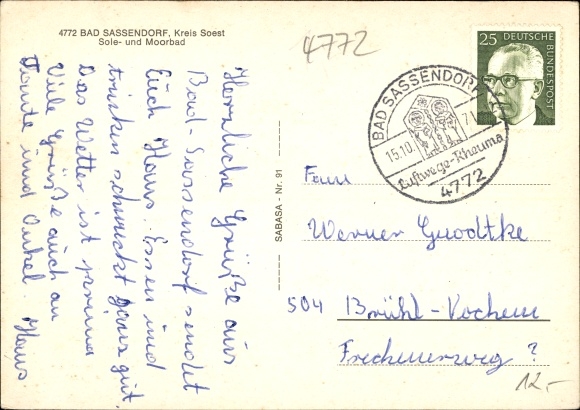 4772 BAD SASSENDORF, Kreis Soest
Sole- und Moorbad
Herzliche Grüße aus
Bad-Sassendorf sendet
Euch Hans. Essen und
trinken schmeckt ganz gut.
Das Wetter ist prima
Viele Grüße auch an
Tante und Onkel. Hans.
SABASA - Nr. 91
4772
25 DEUTSCHE
BUNDESPOST
BAD SASSENDORF
15.10. 71
Luftwege-Rheuma
4772
Werner
504 Brühl-Vochem
Frechenerweg ?
12,-